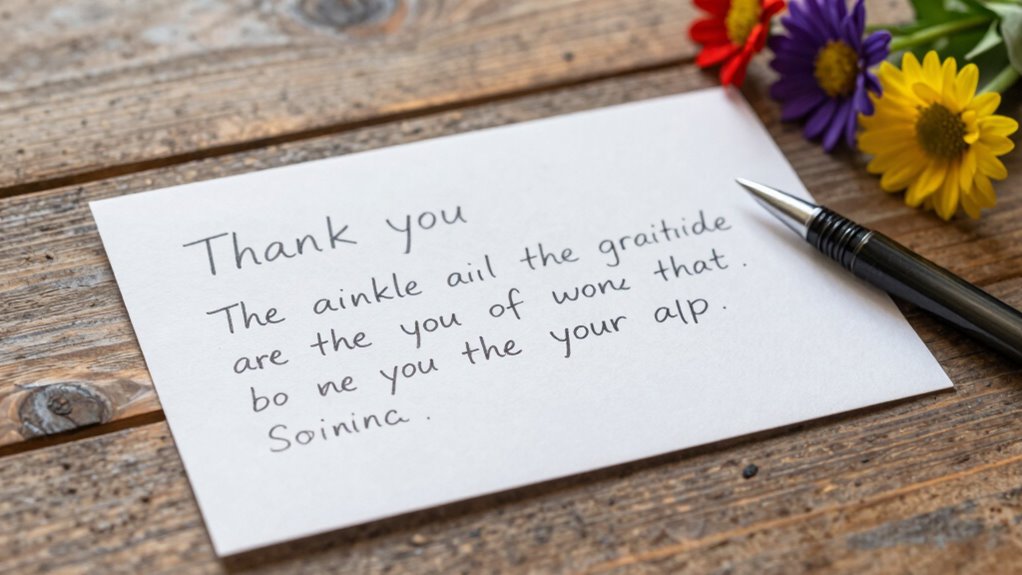 Thank you
The ainkle ail the graitide
are the you of wone that.
bo ne you the your alp.
Soinina.